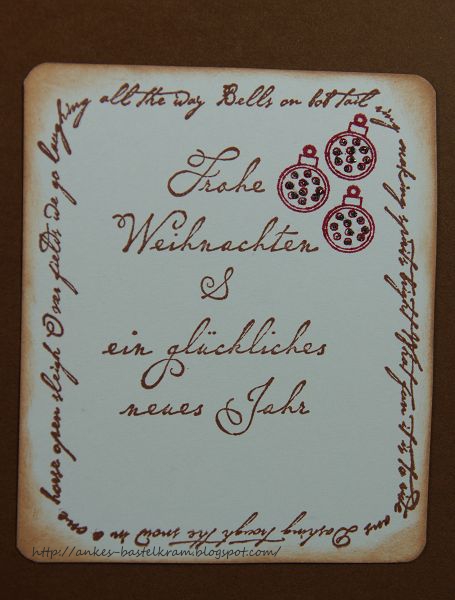 Frohe
Weihnachten
&
ein glückliches
neues Jahr
Dashing the snow in a one
horse open sleigh Over fields we go laughing
all the way Bells on bob tail ring
making spirits bright What fun it is to ride
http://ankes-bastelkram.blogspot.com/